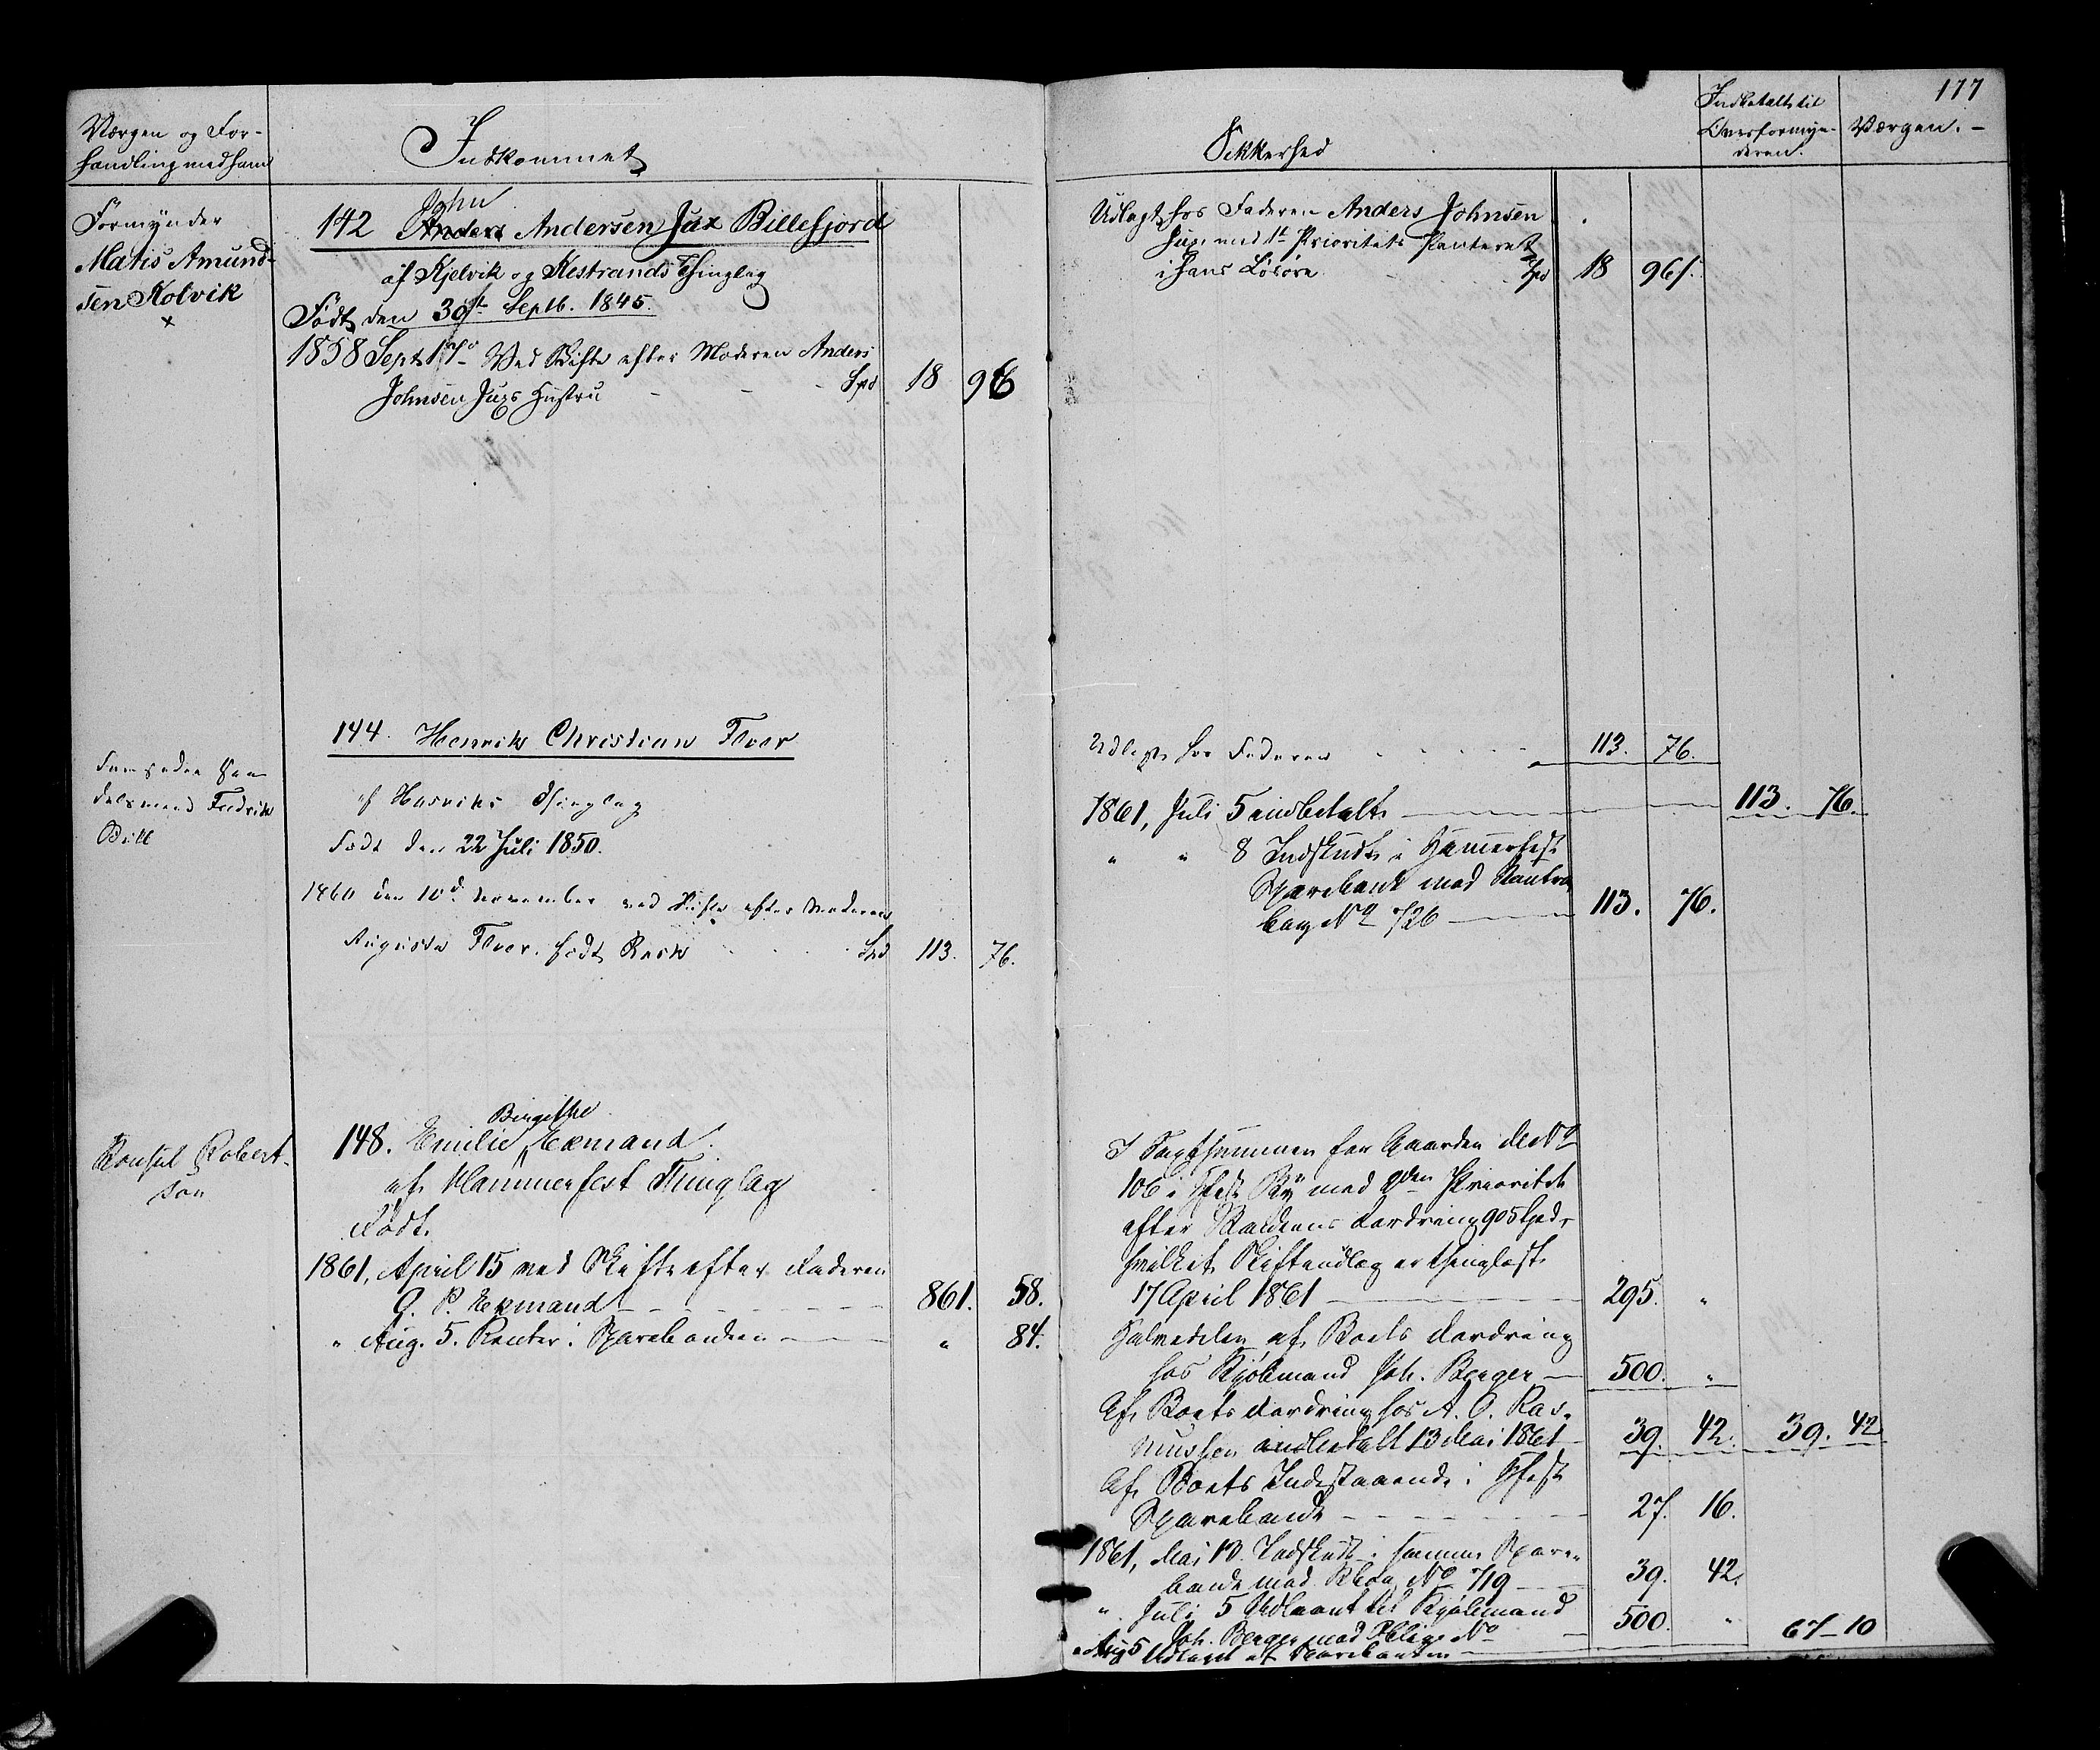 177
Værgen og For-
handling med ham
Indkommet
Sikkerhed
Indbetalt til
Overformyn-
deren.
Værgen. -
Formynder
Matis Amund-
sen Kolvik
x
John
142 Anders Andersen Jux Billefjord
af Kjelvik og Kistrands Thinglag
Født den 30te Septb. 1845.
1858 Sept 17 Ved Skifte efter Moderen Anders
Johnsen Juxs Hustru - - - Spd 18 96
Udlagt hos Faderen Anders Johnsen
Jux, med 1te Prioritets Panteret
i hans Løsøre Spd 18 96/.
Handelsmand Fredrik
144. Henrik Christian
af Thinglag
Født den 22 Juli 1850.
1860 den 10de November ved Skifte efter Moderen
Augusta født Spd 113. 76.
Udlagt hos Faderen - - - - - 113. 76.
1861, Juli 5 indbetalt 113. 76.
" " 8 Indskudt i Hammerfest
Sparebank med Contra
bog No 726 113. 76.
Konsul Robert-
son
Birgithe
148. Emilie Exmand.
af Hammerfest Thinglag
Født.
1861, April 15 ved Skifte efter Faderen
G. P. Exmand - - - - - 861. 58.
" Aug. 5. Renter i Sparebanken " 84.
I Kjøbesummen for Gaarden M No
106 i Hfest By med 2den Prioritet
efter Fordring 905 Spd,
hvilket Skifteudlæg er thinglæst
17 April 1861 295. "
Halvdelen af Boets Fordring
hos Kjøbmand Joh. Berger 500. "
Af Boets Fordring hos A. O. Ras-
mussen indbetalt 13 Mai 1861 39. 42. 39. 42
Af Boets Indestaaende i Hfest
Sparebank - - - - - 27. 16.
1861, Mai 13. Indskudt i samme Spare-
bank med Cbog No 719 39. 42.
" Juli 5 Udlaant til Kjøbmand
Joh. Berger mod Oblig. No 500. "
" Aug 5 Udtaget af Sparebanken 67-10